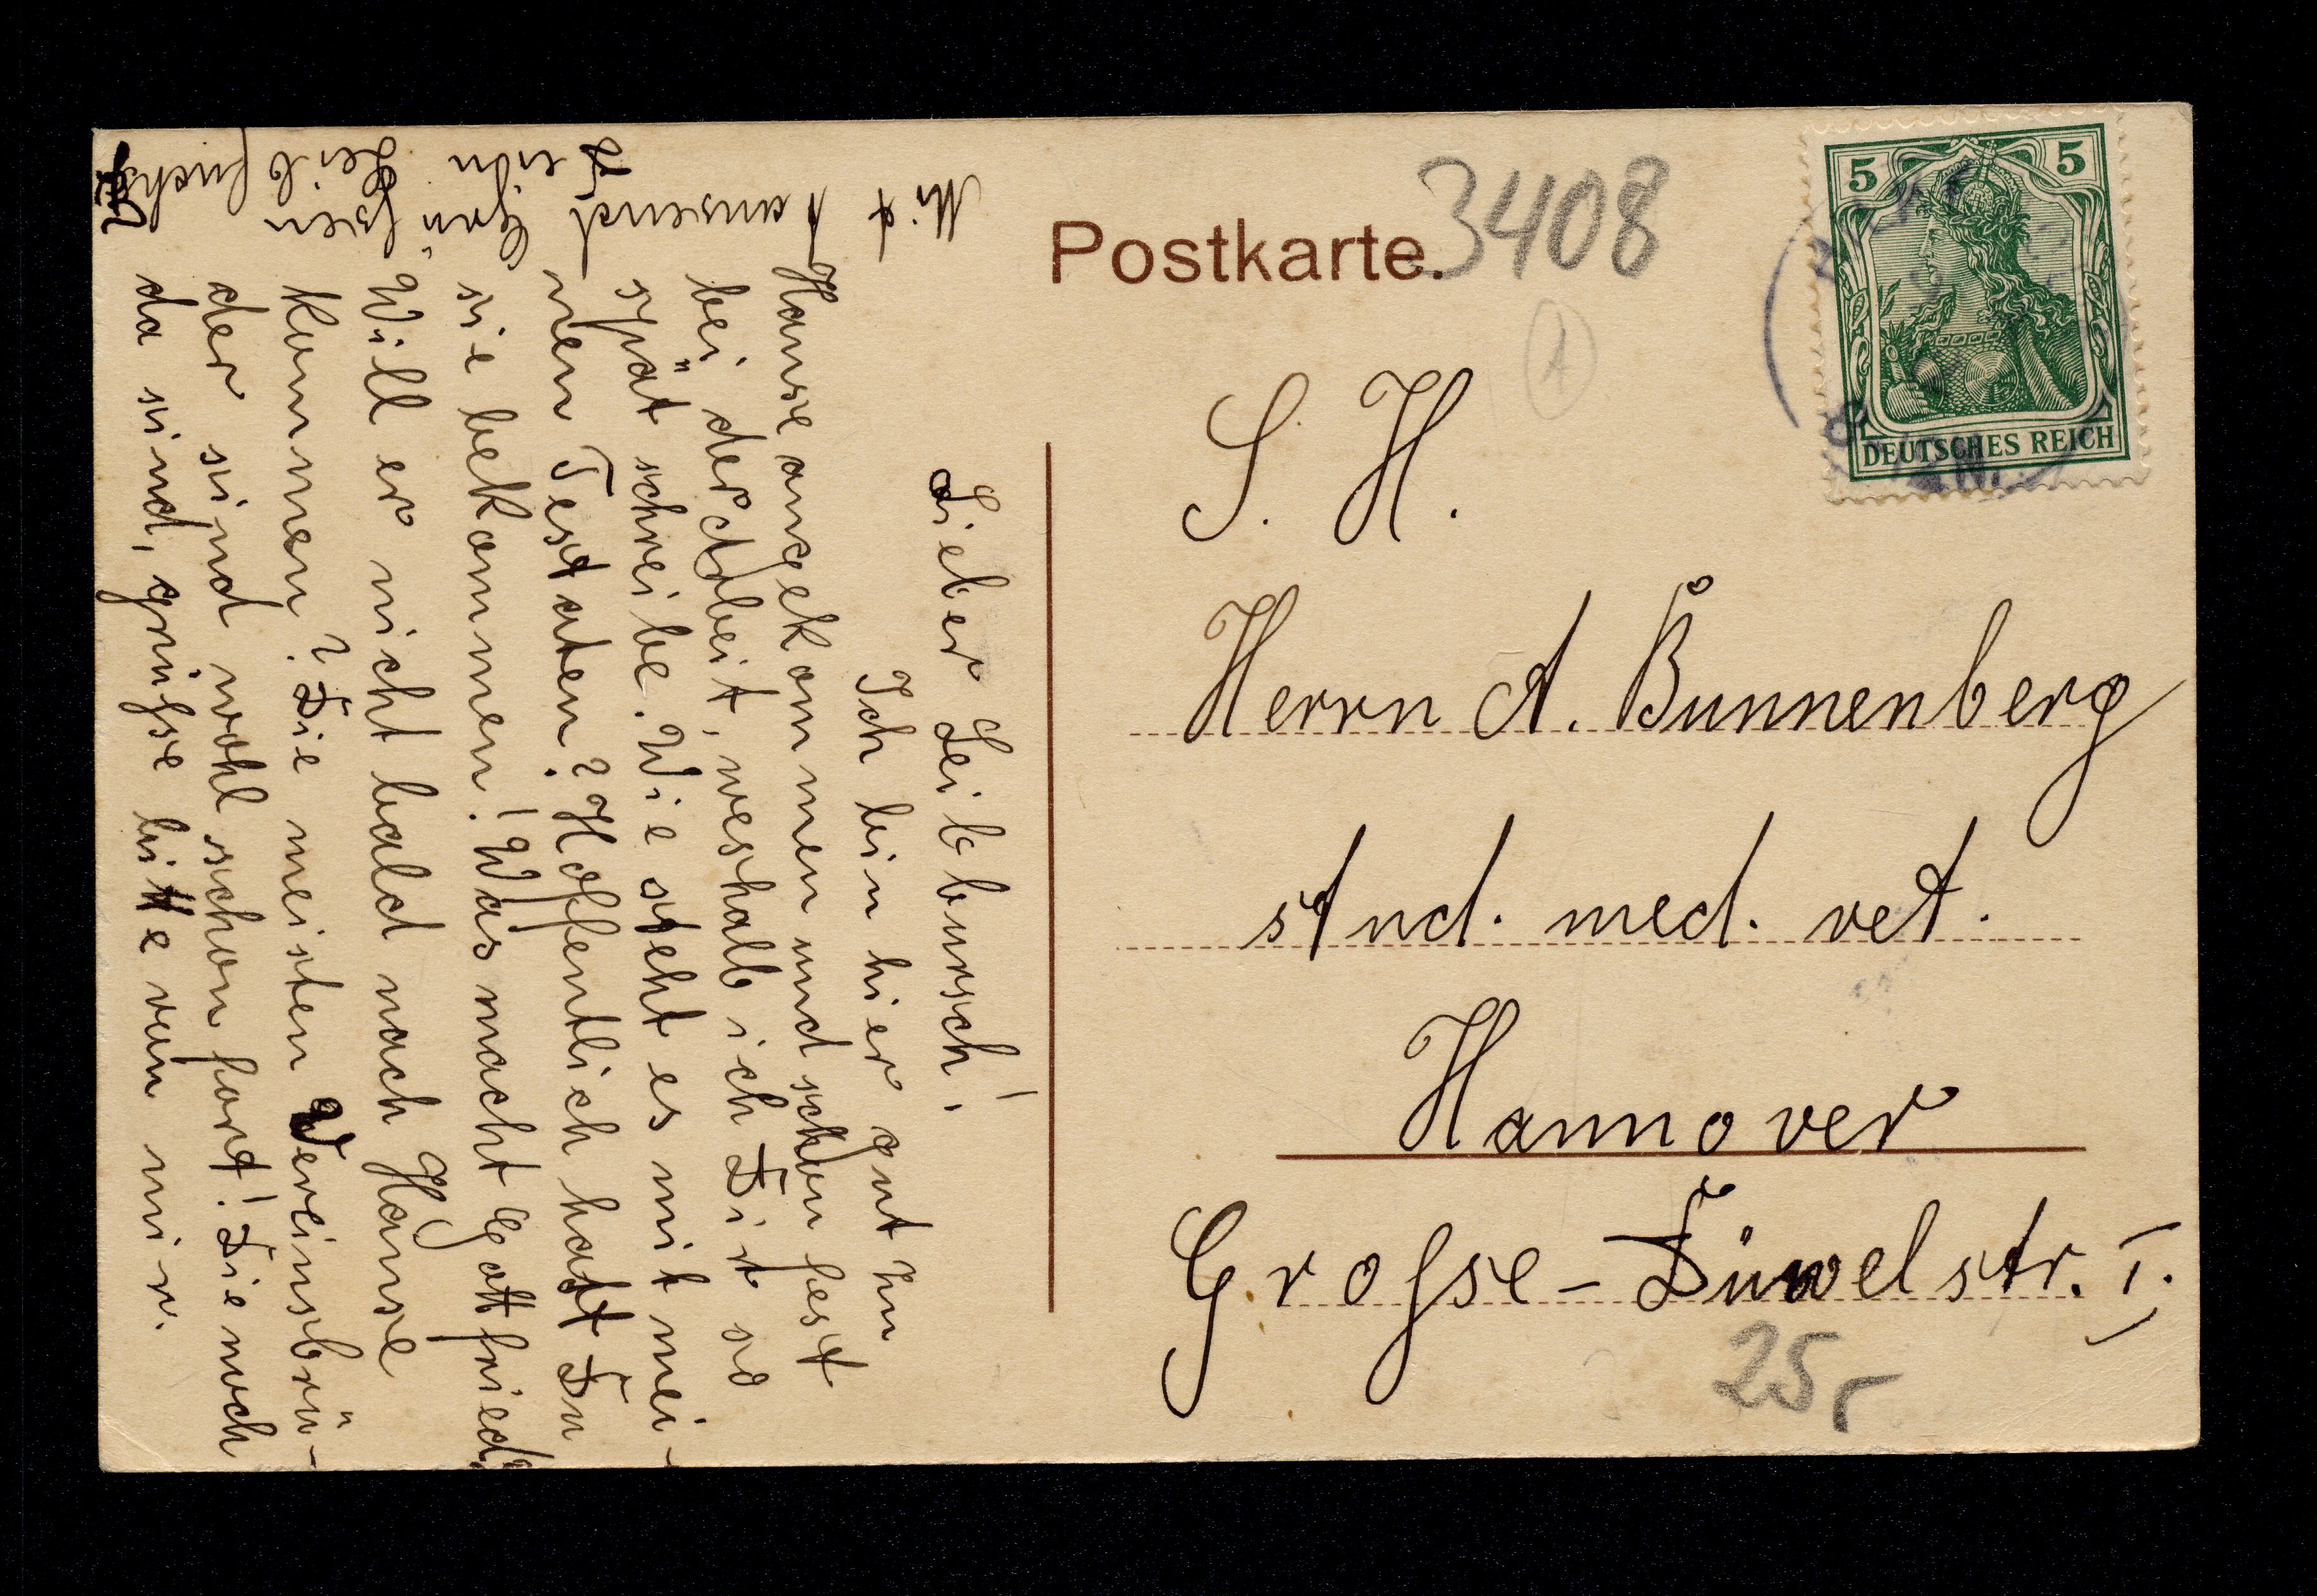 Postkarte.
3408
5 5
DEUTSCHES REICH
S. H.
Herrn A. Bunnenberg
stud. med. vet.
Hannover
Grofse-Düwelstr. I.
25,-
Lieber Leibbursch!
Ich bin hier gut zu
Hause angekommen und schon fest
bei der Arbeit, weshalb ich Dir so
spät schreibe. Wie steht es mit mei-
nen Testaten? Hoffentlich hast Du
sie bekommen! Was macht Gottfried?
Will er nicht bald nach Hause
kommen? Die meisten Vereinsbrü-
der sind wohl schon fort! Die noch
da sind, grüfse bitte von mir.
Mit tausend Grüfsen
Dein Leibfuchs